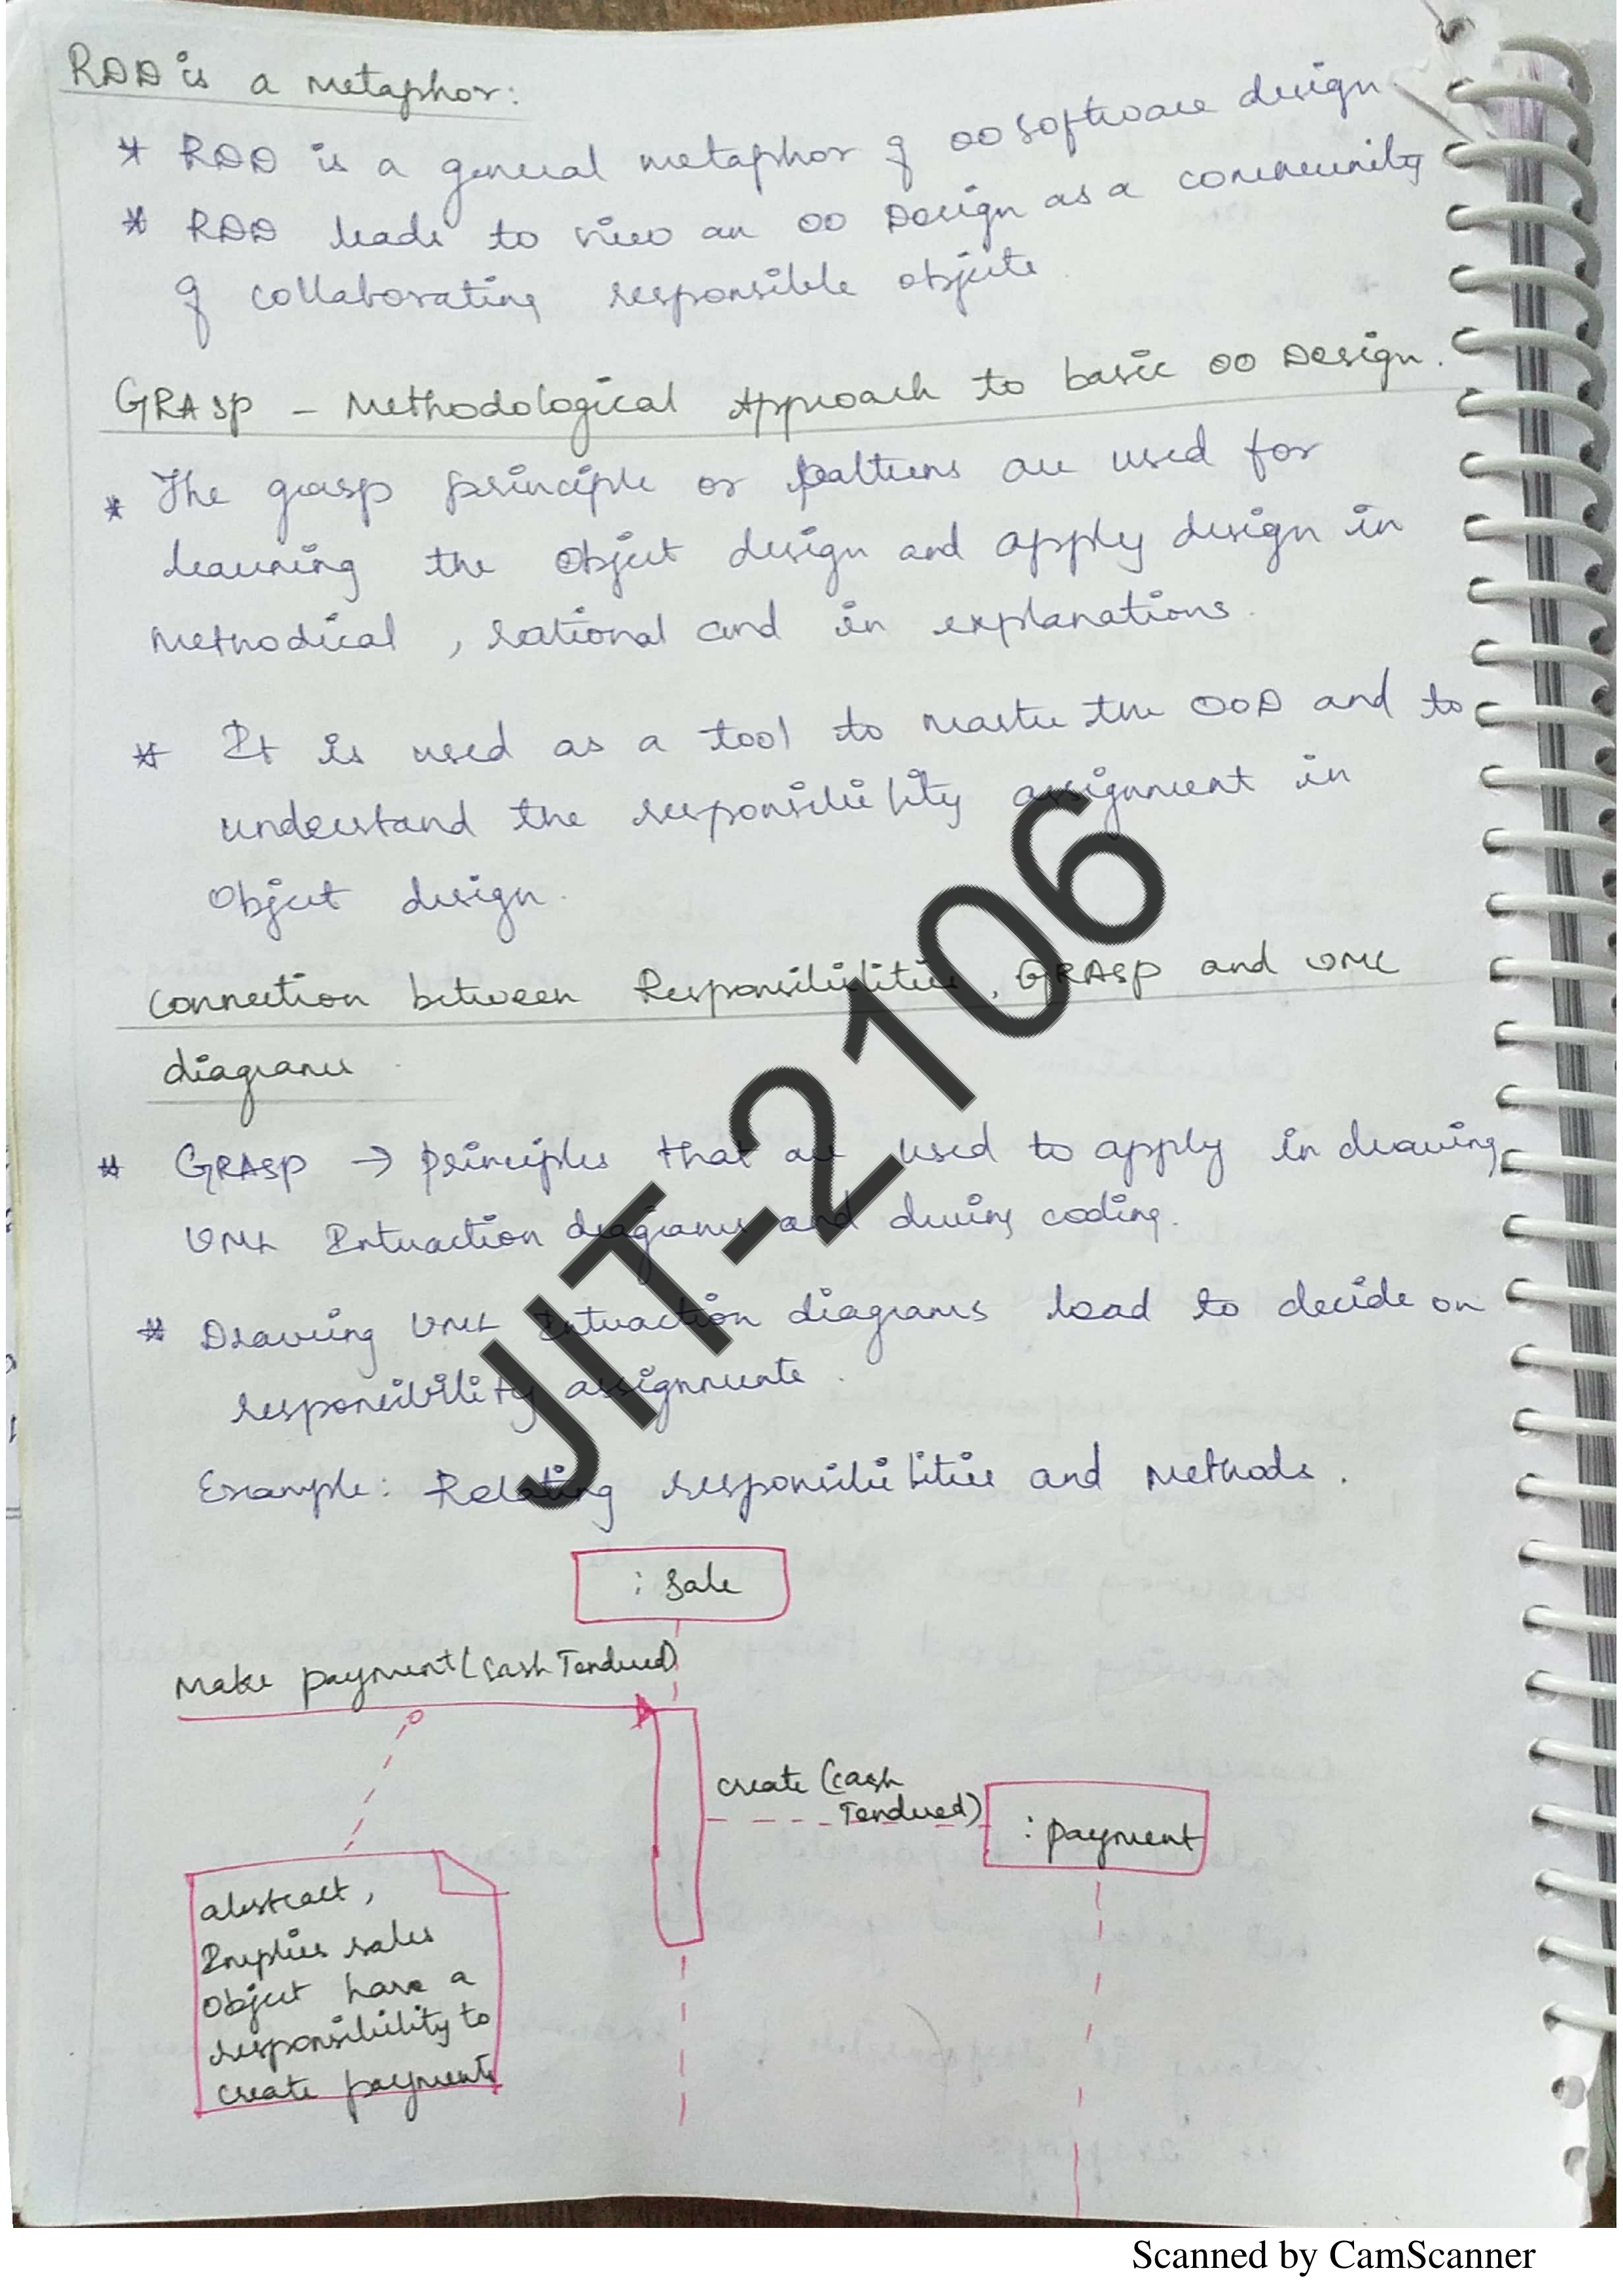 RDD is a metaphor:
* RDD is a general metaphor of OO software design
* RDD leads to view an OO Design as a community
of collaborating responsible objects
GRASP - Methodological Approach to basic OO Design.
* The grasp principle or patterns are used for
learning the Object design and apply design in
Methodical, rational and in explanations.
* It is used as a tool to master the OOD and to
understand the responsibility assignment in
Object design.
Connection between Responsibilities, GRASP and UML
diagrams.
* GRASP → principles that are used to apply in drawing
UML Interaction diagrams and during coding.
* Drawing UML Interaction diagrams lead to decide on
responsibility assignments.
Example: Relating responsibilities and Methods.
: Sale
Make payment (Cash Tendered)
create (cash
Tendered)
: payment
abstract,
Implies sales
Object have a
responsibility to
create payments
JIT-2106
Scanned by CamScanner